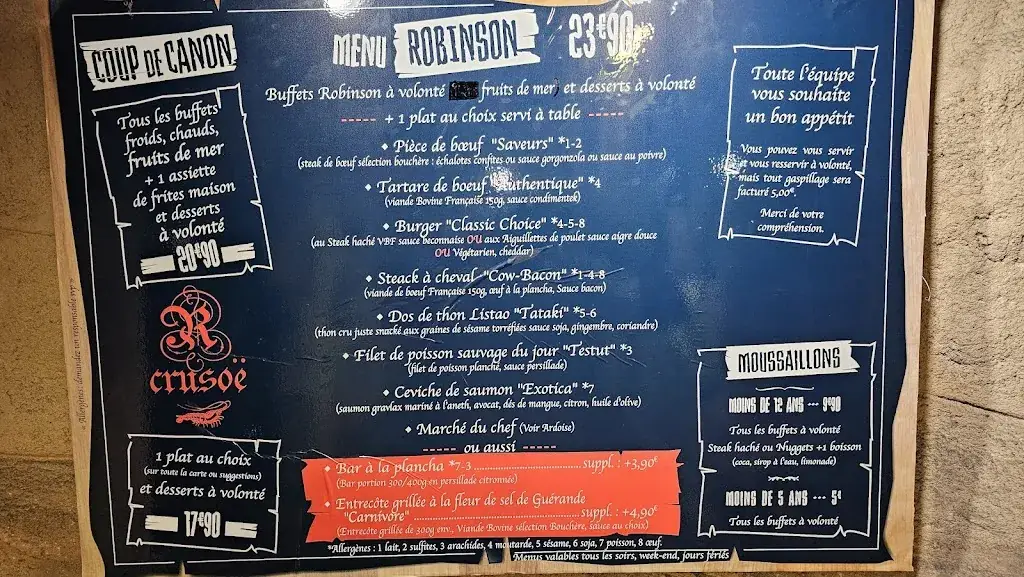 COUP DE CANON
Tous les buffets
froids, chauds,
fruits de mer
+ 1 assiette
de frites maison
et desserts
à volonté
20€90
R
crusoë
1 plat au choix
(sur toute la carte ou suggestions)
et desserts à volonté
17€90
MENU ROBINSON 23€90
Buffets Robinson à volonté fruits de mer) et desserts à volonté
----- + 1 plat au choix servi à table -----
• Pièce de bœuf "Saveurs" *1-2
(steak de bœuf sélection bouchère : échalotes confites ou sauce gorgonzola ou sauce au poivre)
• Tartare de boeuf "Authentique" *4
(viande Bovine Française 150g, sauce condimentek)
• Burger "Classic Choice" *4-5-8
(au Steak haché VBF sauce béconnaise OU aux Aiguillettes de poulet sauce aigre douce
OU Végétarien, cheddar)
• Steack à cheval "Cow-Bacon" *1-4-8
(viande de boeuf Française 150g, œuf à la plancha, Sauce bacon)
• Dos de thon Listao "Tataki" *5-6
(thon cru juste snacké aux graines de sésame torréfiées sauce soja, gingembre, coriandre)
• Filet de poisson sauvage du jour "Testut" *3
(filet de poisson planché, sauce persillade)
• Ceviche de saumon "Exotica" *7
(saumon gravlax mariné à l'aneth, avocat, dés de mangue, citron, huile d'olive)
• Marché du chef (Voir Ardoise)
----- ou aussi -----
• Bar à la plancha *7-3 ........................ suppl. : +3,90€
(Bar portion 300/400g en persillade citronnée)
• Entrecôte grillée à la fleur de sel de Guérande
"Carnivore" ........................................ suppl. : +4,90€
(Entrecôte grillée de 300g env., Viande Bovine sélection Bouchère, sauce au choix)
*Allergènes : 1 lait, 2 sulfites, 3 arachides, 4 moutarde, 5 sésame, 6 soja, 7 poisson, 8 œuf.
Menus valables tous les soirs, week-end, jours fériés
Toute l'équipe
vous souhaite
un bon appétit
Vous pouvez vous servir
et vous resservir à volonté,
mais tout gaspillage sera
facturé 5,00€.
Merci de votre
compréhension.
MOUSSAILLONS
MOINS DE 12 ANS --- 9€90
Tous les buffets à volonté
Steak haché ou Nuggets +1 boisson
(coca, sirop à l'eau, limonade)
MOINS DE 5 ANS --- 5€
Tous les buffets à volonté
Allergènes: demandez un responsable svp *